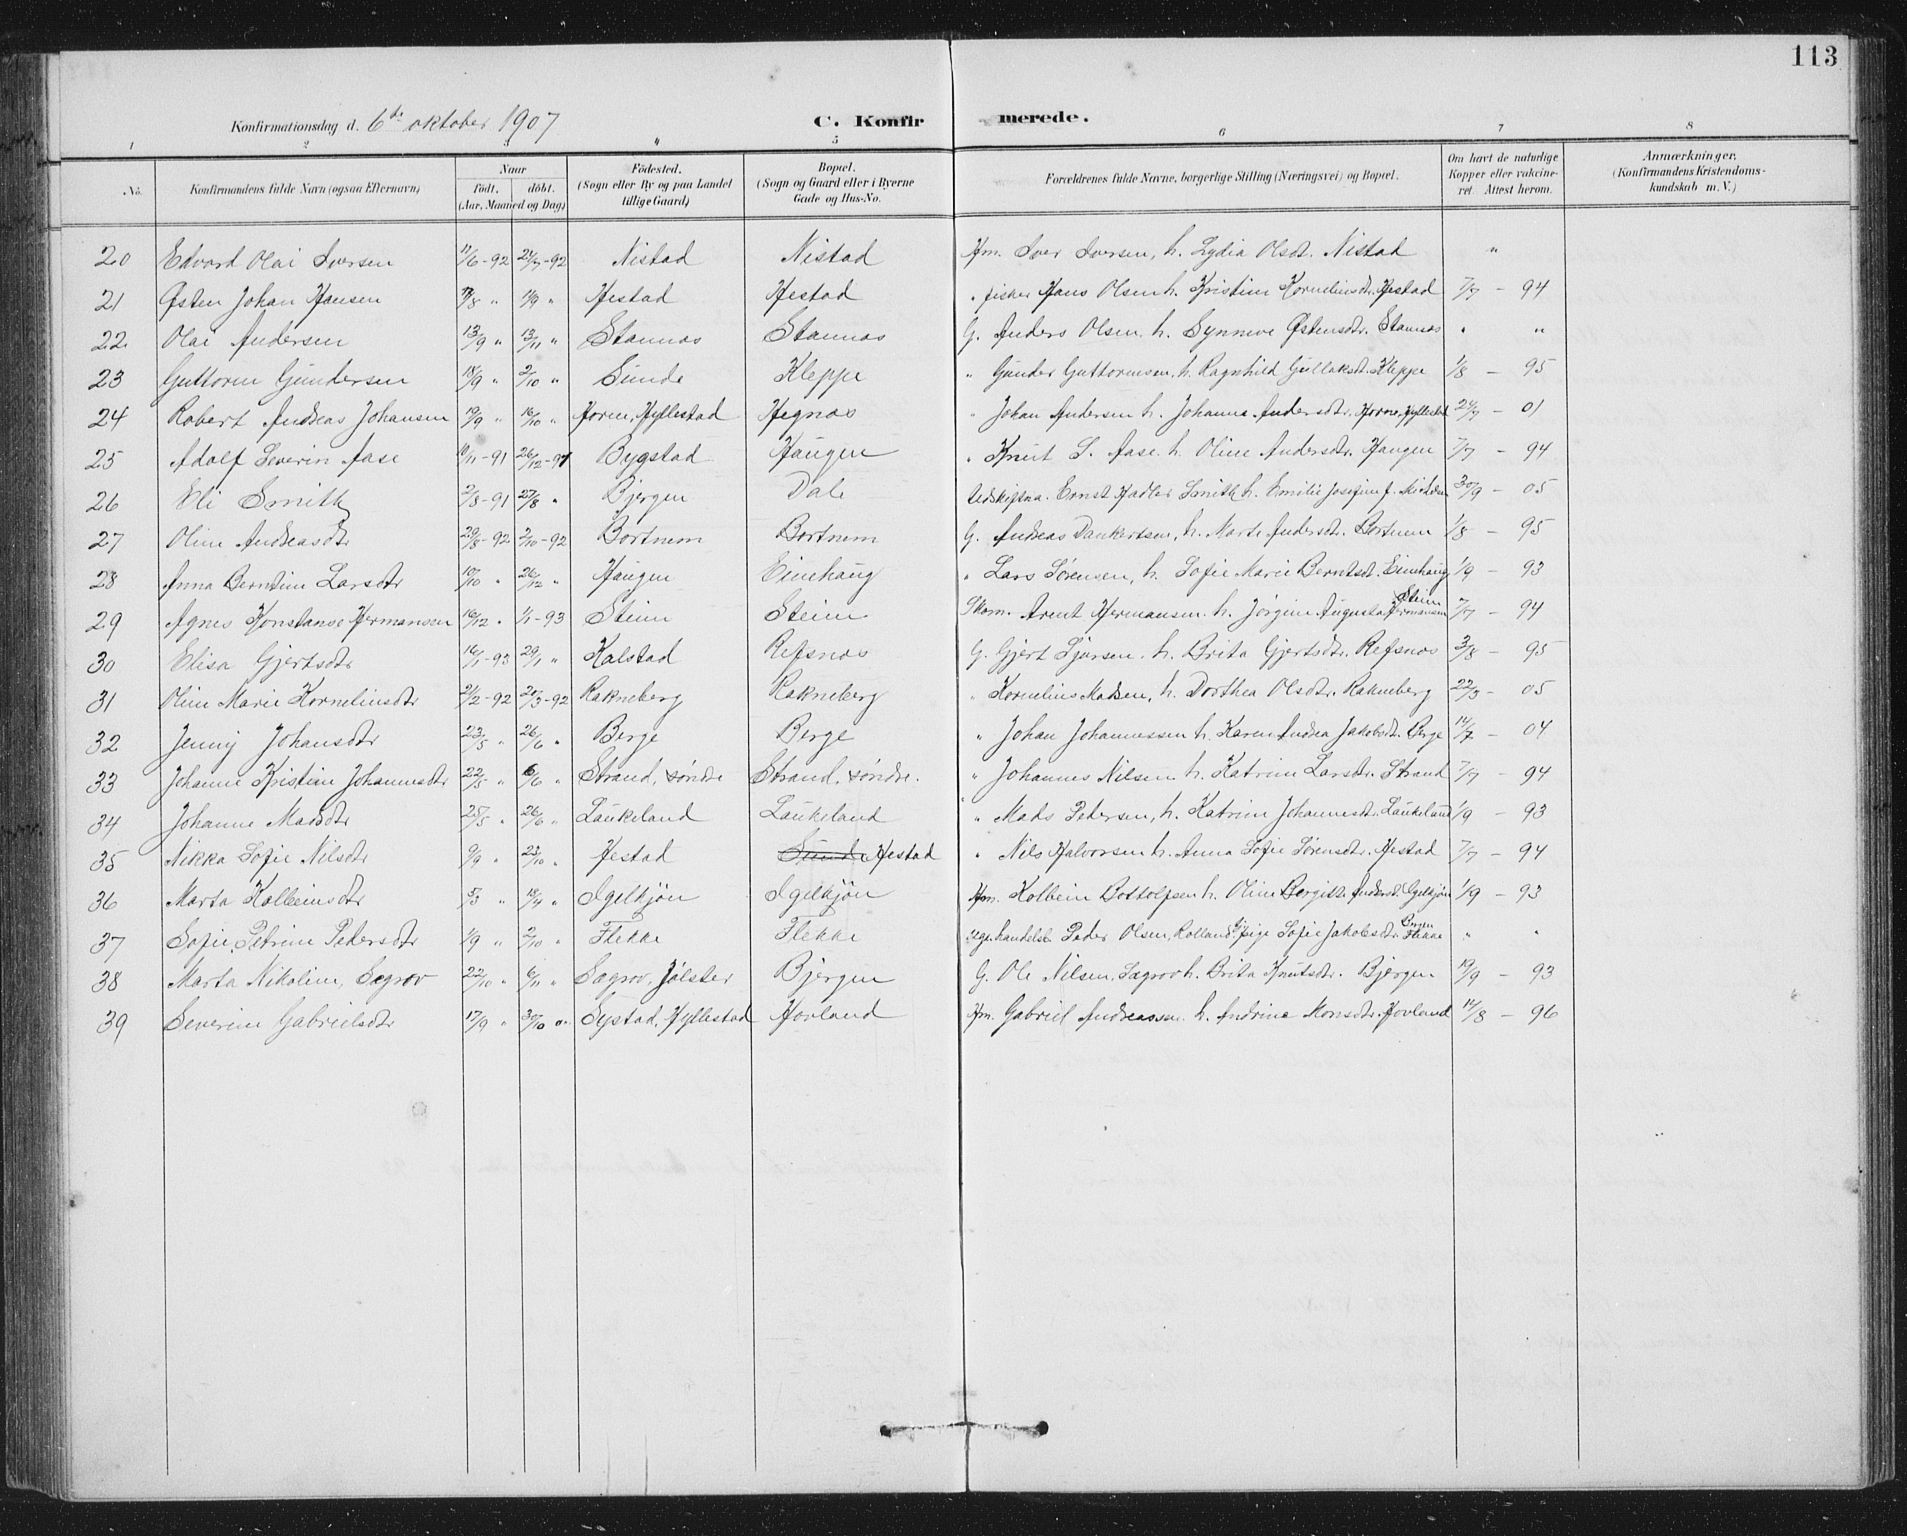 113
Konfirmationsdag d. 6te oktober 1907 C. Konfirmerede.
1 2 3 4 5 6 7 8
No. Konfirmandens fulde Navn (ogsaa Efternavn) Naar født, døbt. (Aar, Maaned og Dag) Födested. (Sogn eller By og paa Landet tillige Gaard) Bopæl. (Sogn og Gaard eller i Byerne Gade og Hus-No. Forældrenes fulde Navne, borgerlige Stilling (Næringsvei) og Bopæl. Om havt de naturlige Kopper eller vaccineret. Attest herom. Anmærkninger. (Konfirmandens Kristendomskundskab m. V.)
20 Edvard Olai Iversen 11/6-92 -92 Nistad Nistad Hm. Iver Iversen, h. Lydia Olsdt. Nistad "
21 Østen Johan Hansen /8 " " Hestad Hestad " fisker Hans Olsen h. Kristine Kornelinsdtr. Hestad 7/7 - 94
22 Olai Andersen 13/9 " 13/11 " Stavnos Stavnos G. Anders Olsen h. Synneve Østensdtr. Stavnos " "
23 Guttorm Gundersen 18/9 " 2/10 " Sunde Kleppe " Gunder Guttormsen, h. Ragnhild Gullaksdt. Kleppe 1/8 - 95
24 Robert Andreas Johansen 19/9 " 16/10 " Horne, Hyllestad Hegnos " Johan Andersen h. Johanna Andersdtr. Horne, Hyllestad 24/7 - 01
25 Adolf Severin Aase 10/11-91 26/12-91 Bygstad Haugen " Knut S. Aase h. Oline Andersdtr. Haugen 7/7 - 94
26 Eli Smith 2/8-91 27/8 " Bjergen Dale Ernst Hadler Smith h. Emilie Josefine f. 30/9 - 05
27 Oline Andreasdtr 29/8-92 2/10-92 Bortnem Bortnem G. Andreas Dankertsen, h. Marte Andersdt. Bortnem 1/8 - 95
28 Anna Berntine Larsdtr 10/10 " 26/12 " Haugen Einehaug " Lars Sørensen, h. Sofie Marie Berntsdt. Einehaug 1/9 - 93
29 Agnes Konstanse Hermansen 16/12 " 1/1-93 Steien Steien Skom. Arent Hermansen h. Jørgine Augusta Hermansen Steien 7/7 - 94
30 Elisa Gjertsdtr 16/1-93 29/1 " Kalstad Refsnos G. Gjert Sjursen h. Brita Gjertsdtr. Refsnos 3/8 - 95
31 Oline Marie Kornelinsdtr 21/2-92 20/3-92 Rakneberg Rakneberg " Kornelius Madsen, h. Dorthea Olsdtr. Rakneberg 22/3 - 05
32 Jenny Johansdtr 23/5 " 26/6 " Berge Berge " Johan Johannessen h. Karen Andrea Jakobsdt. Berge 14/7 - 04
33 Johanne Kristine Johannesdtr 22/5 " 6/6 " Strand, søndre Strand, søndre. " Johannes Nilsen h. Katrine Larsdtr. Strand 7/7 - 94
34 Johanne Madsdtr 25/5 " 26/6 " Laukeland Laukeland " Mads Pedersen, h. Katrine Johannesdtr. Laukeland 1/9 - 93
35 Nikka Sofie Nilsdtr 9/9 " 23/10 " Hestad Sunde Hestad " Nils Halvorsen h. Anna Sofie Sørensdtr. Hestad 7/7 - 94
36 Marta Kolbeinsdtr 5/3 " 18/4 " Igelkjøn Igelkjøn Hm. Kolbein Bottolfsen h. Oline Bergitte Andersdt. Igelkjøn 1/9 - 93
37 Sofie Petrine Pedersdtr 1/9 " 2/10 " Flekke Flekke Peder Olsen, Rolland, Pige Sofie Jakobsdtr Flekke " "
38 Marta Nikoline Sægrov 22/10 " 6/11 " Sægrov, Jølster Bjergen G. Ole Nilsen Sægrov h. Brita Knutsdtr. Bjørgen 19/9 - 93
39 Severine Gabrielsdtr 17/9 " 30/10 " Systad, Hyllestad Hovland Hm. Gabriel Andreassen h. Andrine Monsdtr. Hovland 14/8 - 96